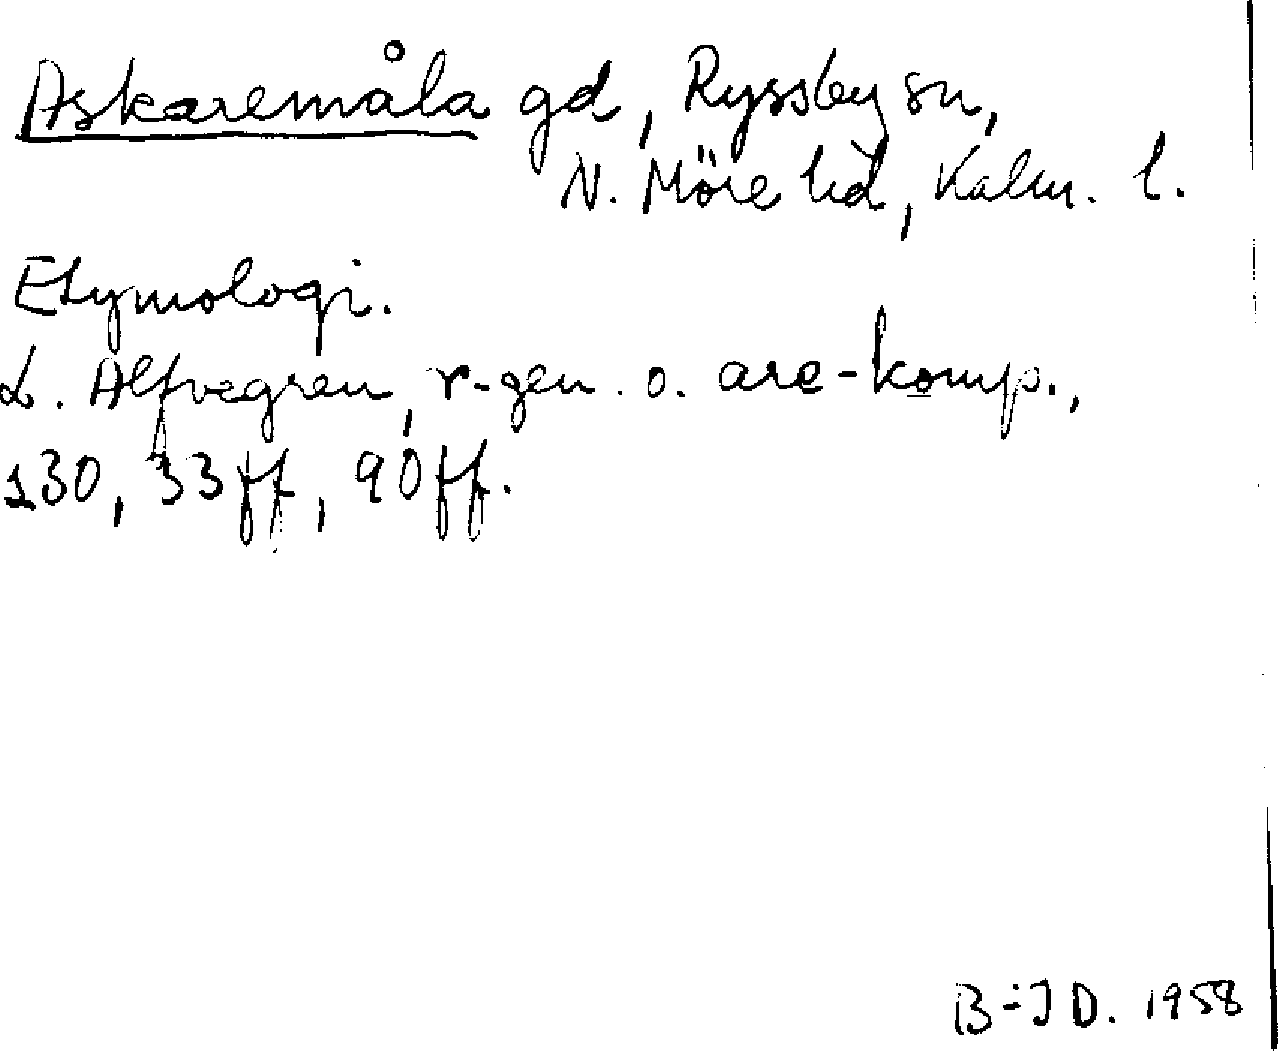 Askaremåla gd, Ryssby sn,
N. Möre hd, Kalm. l.
Etymologi.
L. Alfvegren, r-gen. o. are-komp.,
130, 33ff, 90ff.
B-J D. 1958